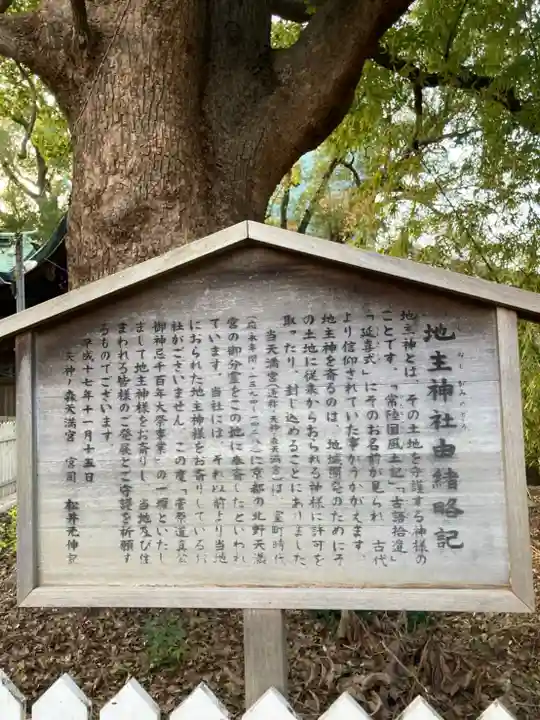 地主神社由緒略記
地主神とは、その土地を守護する神様の
ことです。「常陸国風土記」「古語拾遺」
「延喜式」にそのお名前が見られ、古代
より信仰されていた事がうかがえます。
地主神を斎るのは、地域開発のためにそ
の土地に従来からおられる神様に許可を
取ったり、封じ込めることにありました。
当天満宮(通称 天神森天満宮)は、室町時代
(応永年間一三九四-一四二八)に京都の北野天満
宮の御分霊をこの地に奉斎したといわれ
ています。当社には、それ以前より当地
におられた地主神様をお斎りしているお
社がございません。この度「菅原道真公
御神忌千百年大祭事業」の一環といたし
まして地主神様をお斎りし、当地及び住
まわれる皆様のご発展とご守護を祈願す
るものでございます。
平成十七年十一月十五日
天神ノ森天満宮 宮司 松井